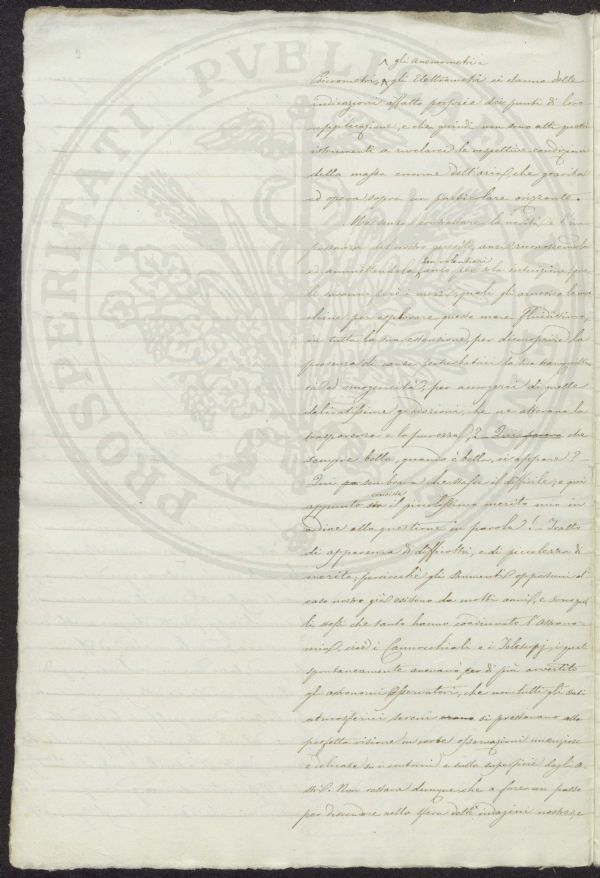 gli anemometri e
Barometri, gli Elettrometri ci danno delle
indicazioni affatto proprie dei punti di loro
applicazione, e che quindi non sono atti questi
istrumenti a rivelarci le rispettive condizioni
della massa enorme dell'aria, che gravita
ed opera sopra un particolare orizzonte.
Ma senza contrastare la verità e l'im
portanza del nostro quesito, anzi riconoscendo
ed ammettendola
ben volentieri
per
saranno i mezzi, quali gli
per esplorare questo mare fluidissimo,
in tutta la sua estensione, per discoprire la
presenza di cause perturbatrici la sua tranquilli
tà ed omogeneità, per accorgerci di quelle
delicatissime gradazioni, che ne alterano la
trasparenza e la purezza, ? Qui che
sempre bella, quando è bella, ci appare?
Qui sembra che stasse il difficile, e qui
consiste
appunto sta il piccolissimo merito mio in
ordine alla questione in parola! Tratto
di apparenza di difficoltà, e di piccolezza di
merito, perciocchè gli strumenti opportuni al
caso nostro già esistono da molti anni, e sono quel
li stessi che tanto hanno coadiuvato l'Astrono
mia, cioè i Cannocchiali e i Telescopj, i quali
spontaneamente avevano di più avvertito
gli astronomi Osservatori, che non tutti gli stati
atmosferici sereni erano si prestavano alla
perfetta visione in certe osservazioni minuziose
e delicate su i contorni e sulla superficie degli A
stri. Non restava dunque che a fare un passo
per discendere nella sfera delle indagini nostre, e